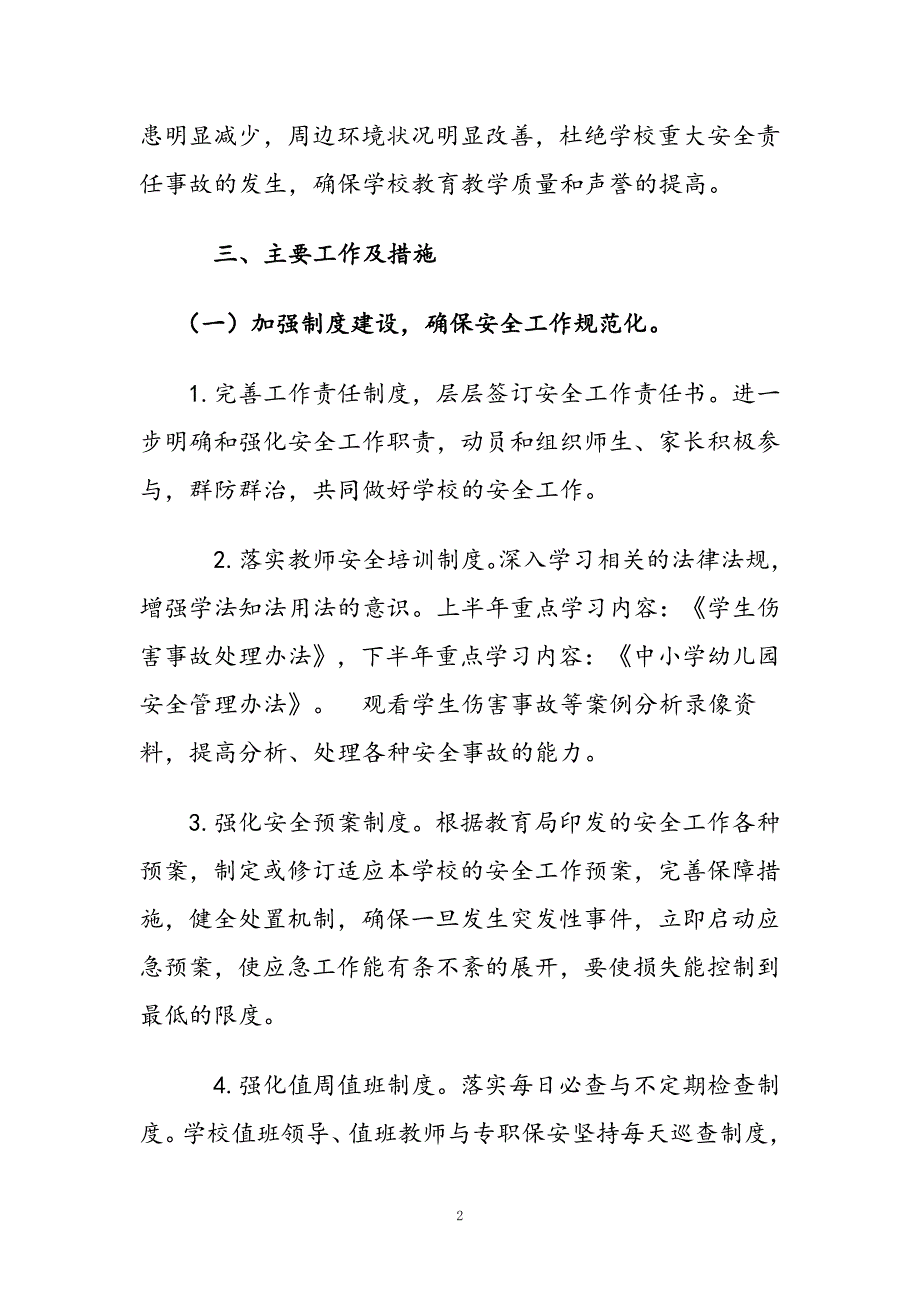 患明显减少，周边环境状况明显改善，杜绝学校重大安全责
任事故的发生，确保学校教育教学质量和声誉的提高。
三、主要工作及措施
（一）加强制度建设，确保安全工作规范化。
1.完善工作责任制度，层层签订安全工作责任书。进一
步明确和强化安全工作职责，动员和组织师生、家长积极参
与，群防群治，共同做好学校的安全工作。
2.落实教师安全培训制度。深入学习相关的法律法规，
增强学法知法用法的意识。上半年重点学习内容：《学生伤
害事故处理办法》，下半年重点学习内容：《中小学幼儿园
安全管理办法》。　观看学生伤害事故等案例分析录像资
料，提高分析、处理各种安全事故的能力。
3.强化安全预案制度。根据教育局印发的安全工作各种
预案，制定或修订适应本学校的安全工作预案，完善保障措
施，健全处置机制，确保一旦发生突发性事件，立即启动应
急预案，使应急工作能有条不紊的展开，要使损失能控制到
最低的限度。
4.强化值周值班制度。落实每日必查与不定期检查制
度。学校值班领导、值班教师与专职保安坚持每天巡查制度，
2